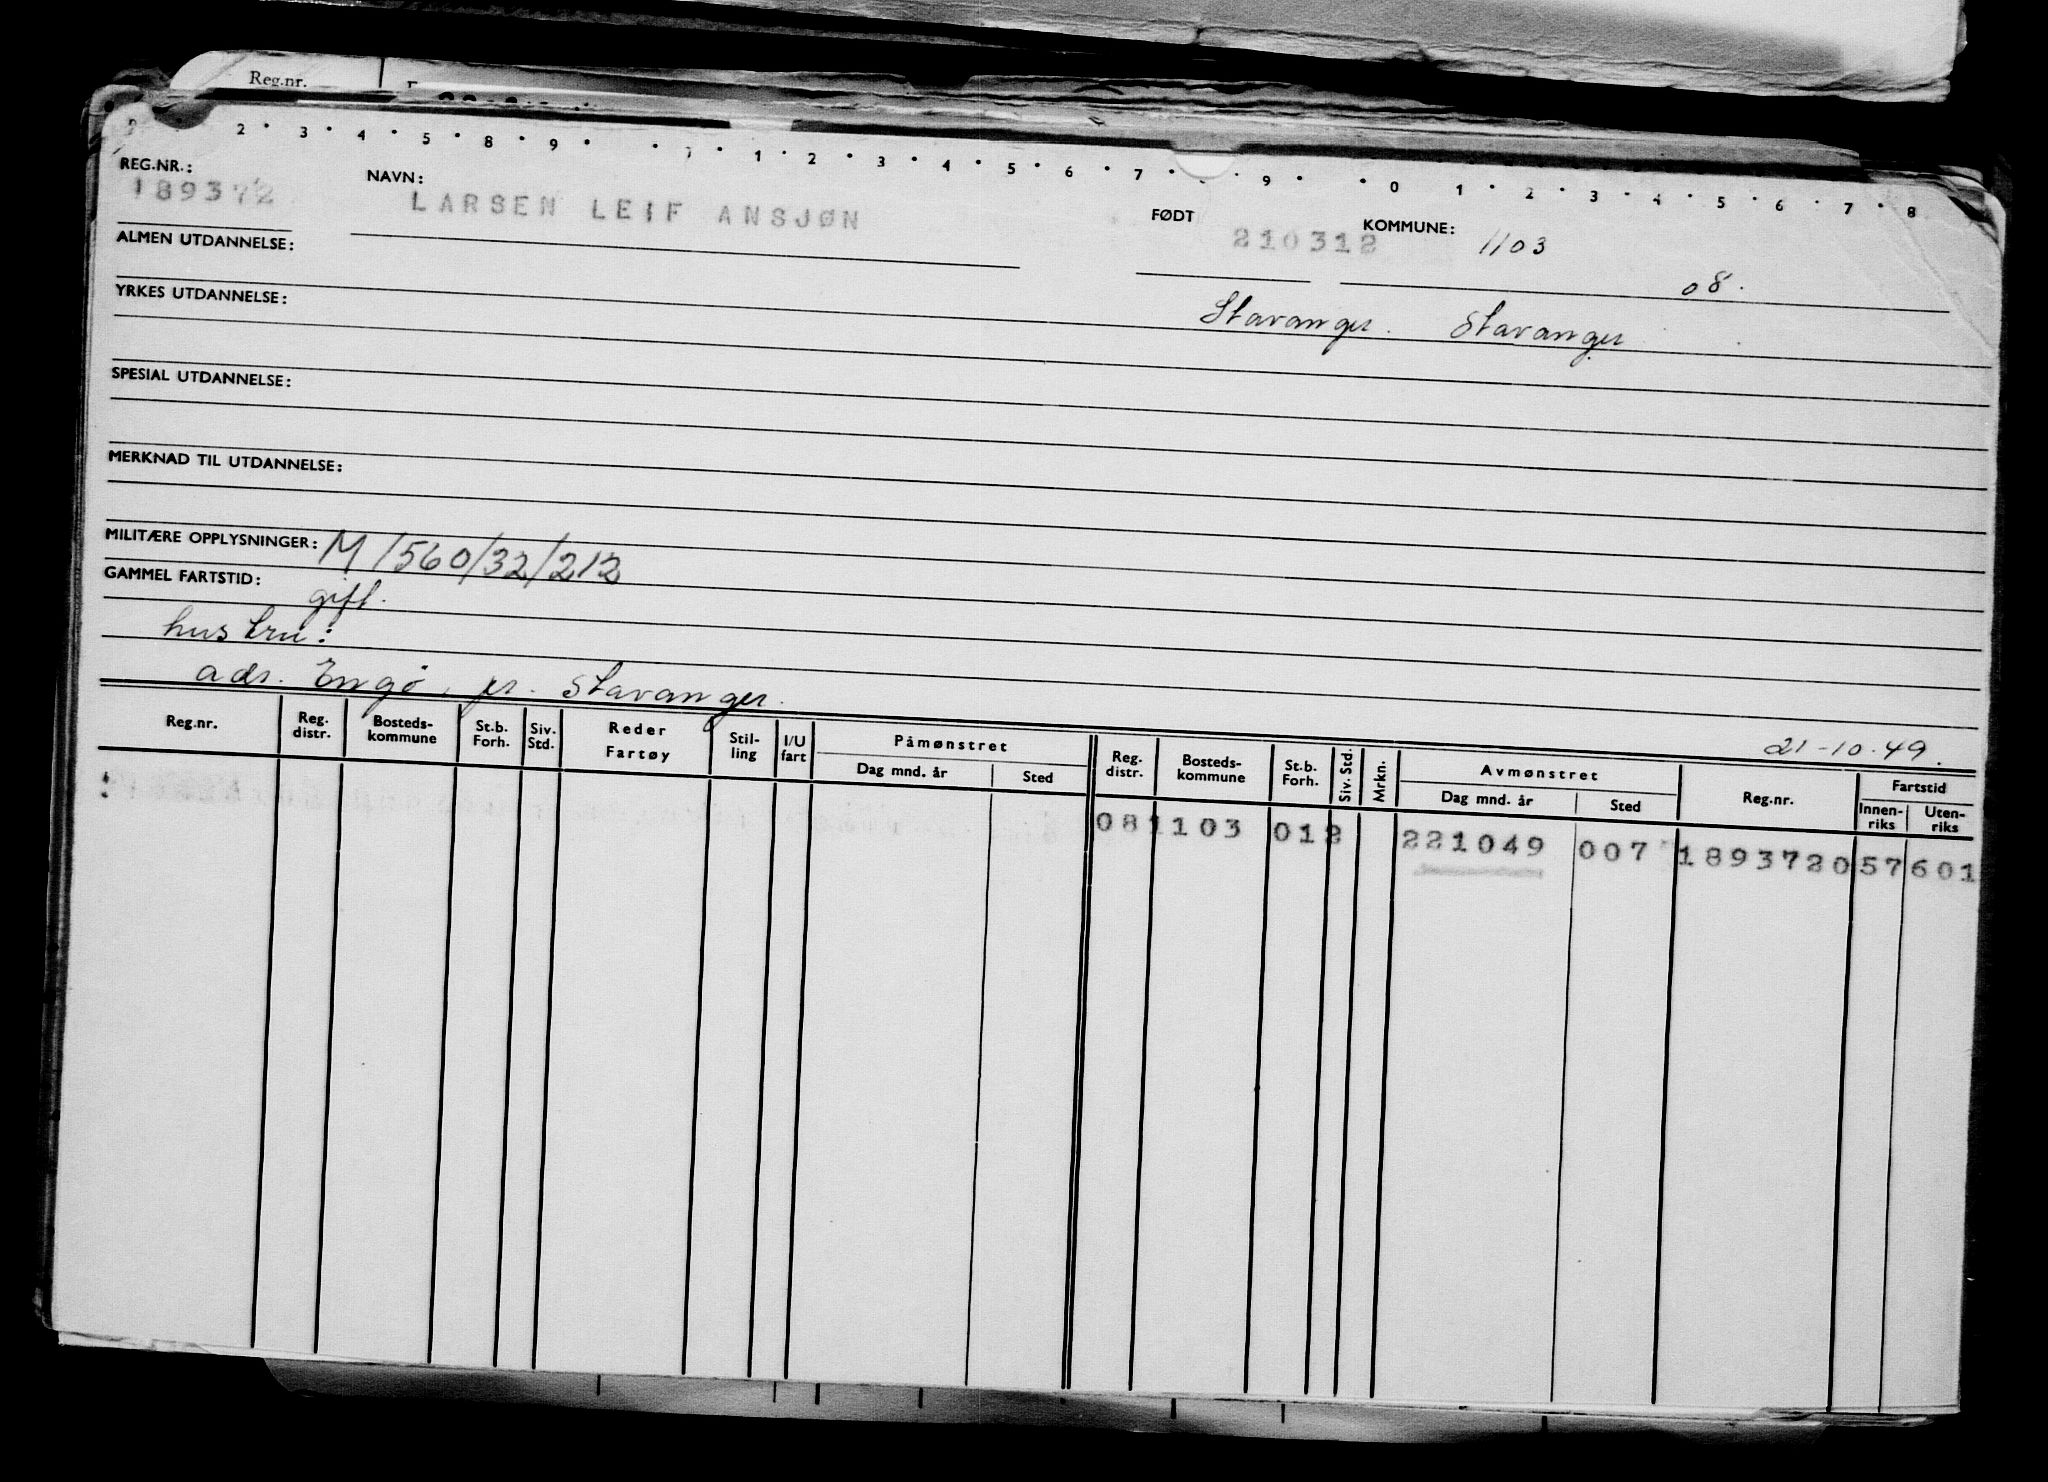 Reg.nr.
2 · 3 · 4 · 5 · 8 · 9 · · 1 · 2 · 3 · 4 · 5 · 6 · 7 · 9 · · 0 1 · 2 · 3 · 4 · 5 · 6 · 7 · 8
REG.NR.: NAVN: FØDT KOMMUNE:
189372 LARSEN LEIF ANSJØN 210312 1103
ALMEN UTDANNELSE:
08.
YRKES UTDANNELSE: Stavanger. Stavanger
SPESIAL UTDANNELSE:
MERKNAD TIL UTDANNELSE:
MILITÆRE OPPLYSNINGER: M/560/32/212
GAMMEL FARTSTID: gift.
hustru:
adr. Engö, pr. Stavanger.
21-10-49.
Reg.nr. Reg. distr. Bosteds- kommune St.b. Forh. Siv. Std. Reder Fartøy Stil- ling I/U fart Påmønstret Reg. distr. Bosteds- kommune St.b. Forh. Siv. Std. Mrkn. Avmønstret Reg.nr. Fartstid
Dag mnd. år Sted Dag mnd. år Sted Innen- riks Uten- riks
08 1103 012 221049 007 1893720 57 601